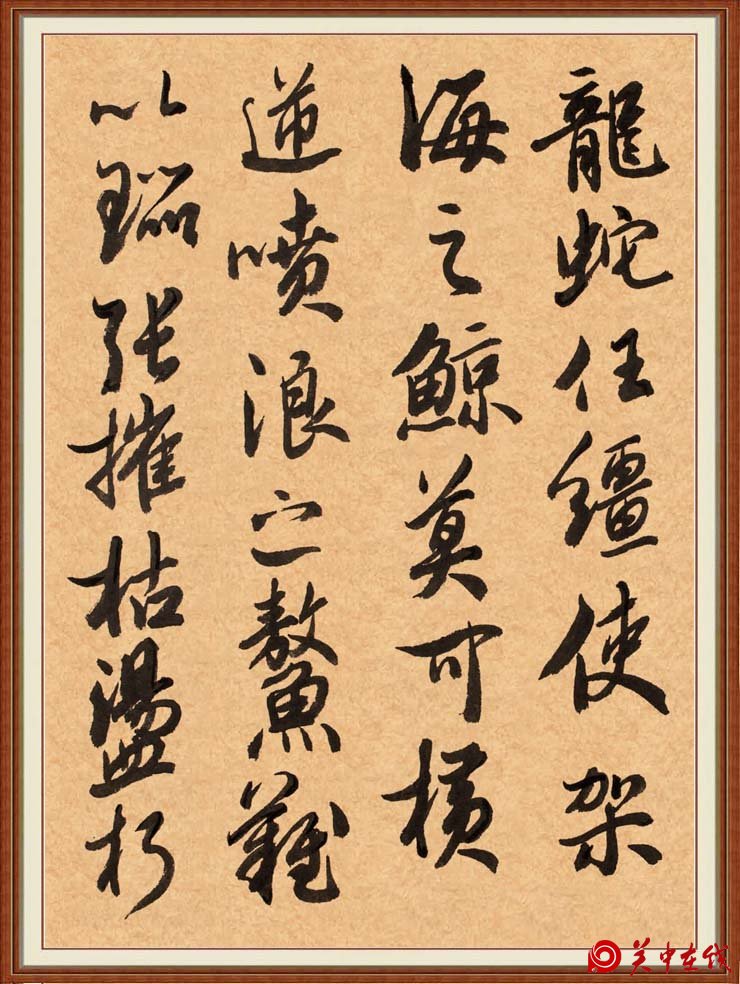 龍蛇任繮使架
海之鯨莫可橫
逆噴浪之鰲難
以張摧枯盪朽
关中在线